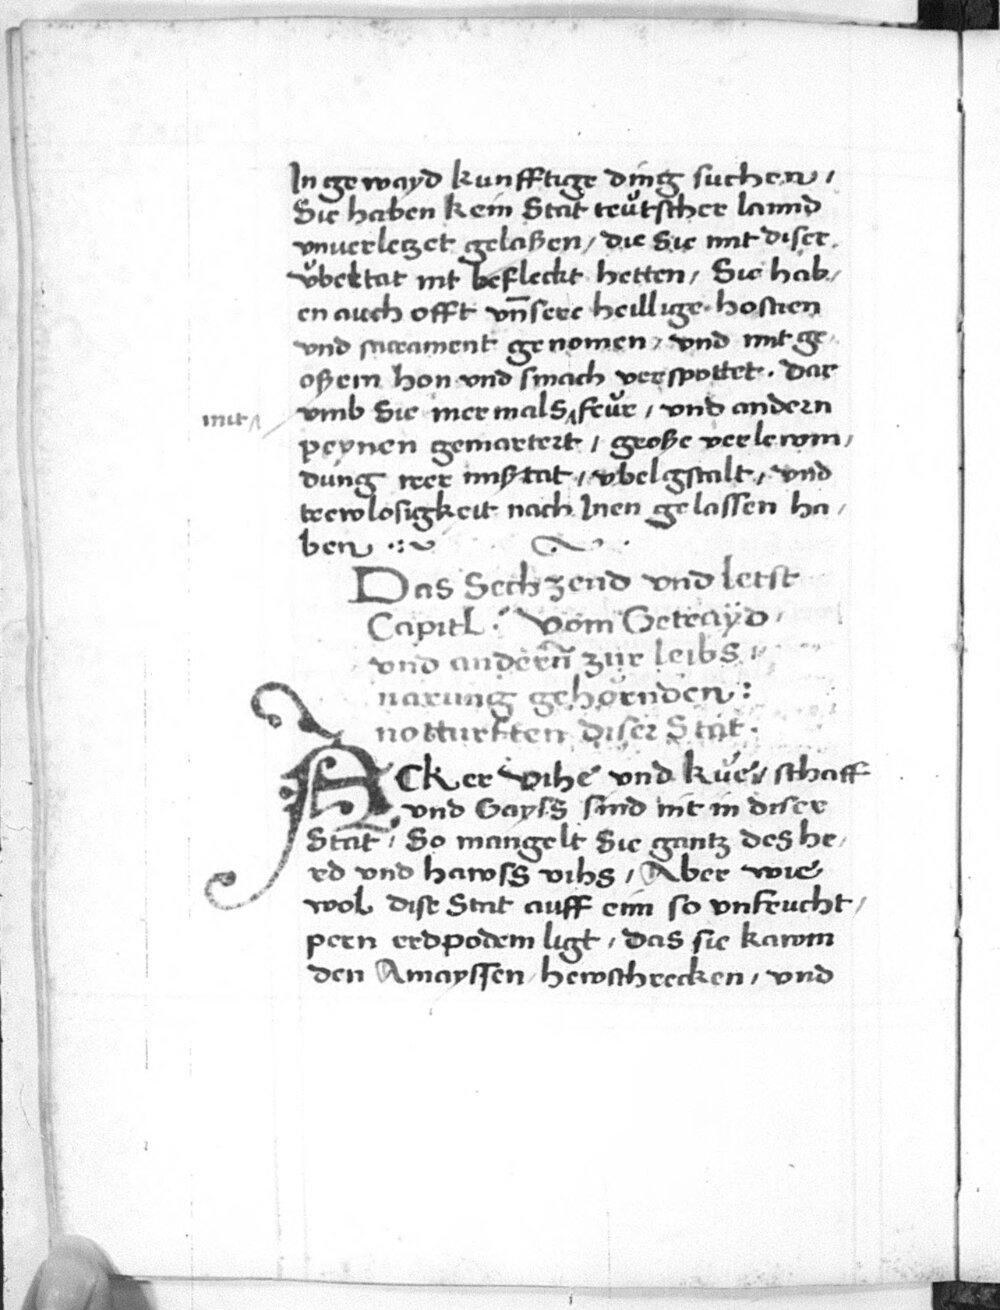 Jngewayd kunfftige ding suchen /
Sie haben kein Stat teůtscher lannd
vnuerletzet gelaßen / die Sie mit diser
vbeltat nit befleckt hetten / Sie hab /
en auch offt vn̄sere heillige hostien
vnd sacrament genomen / vnd mit ge /
oßem hon vnd smach verspottet . dar
vmb Sie mermals feůr / vnd andern
mit /
peynen gemartert / große verlewm /
dung irer mißtat / vbelgstalt / vnd
trewlosigkeit nach Jnen gelassen ha /
ben
Das Sechzend vnd letst
Capitl : vom Getrayd /
vnd andern̄ zur leibs /
narung gehörnden :
notturften diser Stat .
Acker vihe vnd kůe / schaff
vnd Gayss sind nit in diser
Stat / So mangelt Sie gantz des he /
rd vnd hawss vihs / Aber wie
wol dise Stat auff eim so vnfrucht /
pern erdpodem ligt / das sie kawm
den Amayssen / hewschrecken / vnd